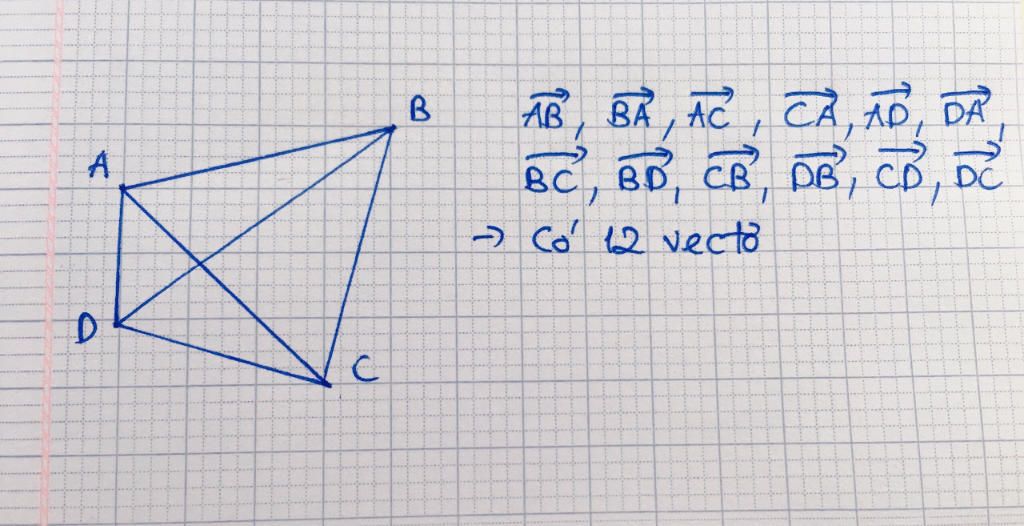 A
B
D
C
\overrightarrow{AB}, \overrightarrow{BA}, \overrightarrow{AC}, \overrightarrow{CA}, \overrightarrow{AD}, \overrightarrow{DA},
\overrightarrow{BC}, \overrightarrow{BD}, \overrightarrow{CB}, \overrightarrow{DB}, \overrightarrow{CD}, \overrightarrow{DC}
→ Có 12 vectơ